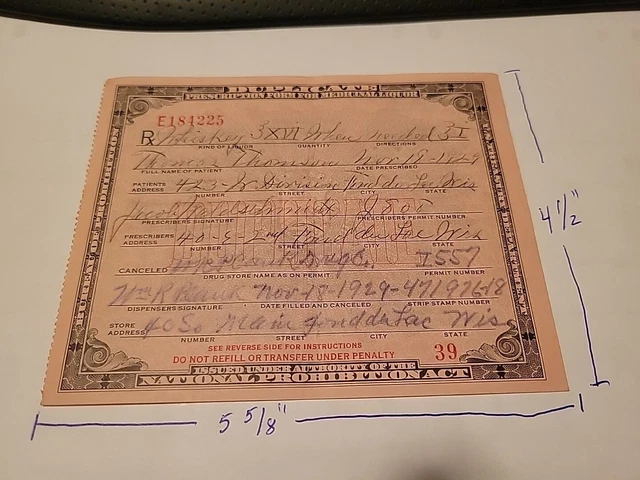 DUPLICATE
PRESCRIPTION FORM FOR MEDICINAL LIQUOR
E184225
Rx Whiskey ʒXVI When needed ʒI
KIND OF LIQUOR QUANTITY DIRECTIONS
Thomas Thomson Nov 18-1929
FULL NAME OF PATIENT DATE PRESCRIBED
PATIENTS ADDRESS 423 W Division Fond du Lac Wis
NUMBER STREET CITY STATE
PRESCRIBERS SIGNATURE PRESCRIBERS PERMIT NUMBER
PRESCRIBERS ADDRESS 40-E-2nd Fond du Lac Wis
NUMBER STREET CITY STATE
CANCELED Wm R Plank Drug Co. I557
DRUG STORE NAME AS ON PERMIT PERMIT NUMBER
Wm R Plank Nov-18-1929-
DISPENSERS SIGNATURE DATE FILLED AND CANCELED STRIP STAMP NUMBER
STORE ADDRESS So Main Fond du Lac Wis
NUMBER STREET CITY STATE
SEE REVERSE SIDE FOR INSTRUCTIONS
DO NOT REFILL OR TRANSFER UNDER PENALTY 39
ISSUED UNDER AUTHORITY OF THE
NATIONAL PROHIBITION ACT
BUREAU OF PROHIBITION
4 1/2"
5 5/8"